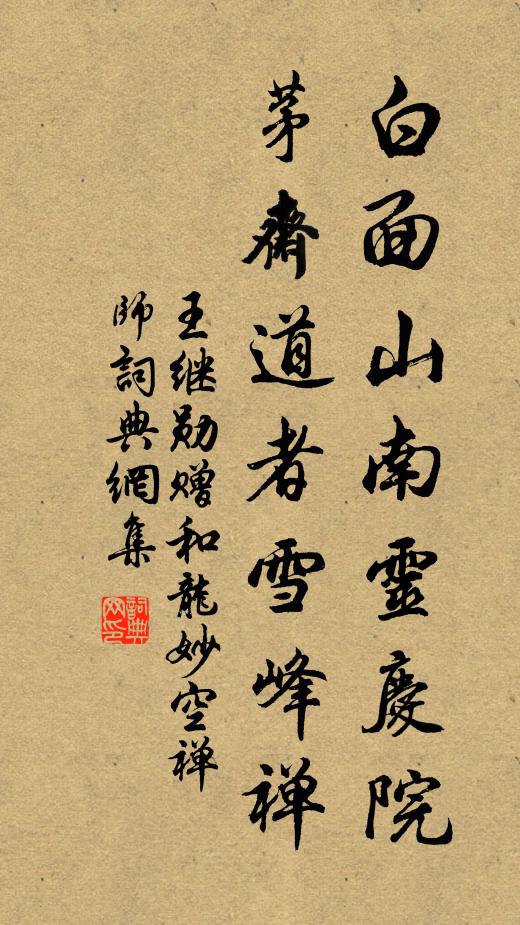 白面山南靈慶院
茅齋道者雪峰禅
王继勋赠和龍妙空禅
師詞典網集
詞典网印